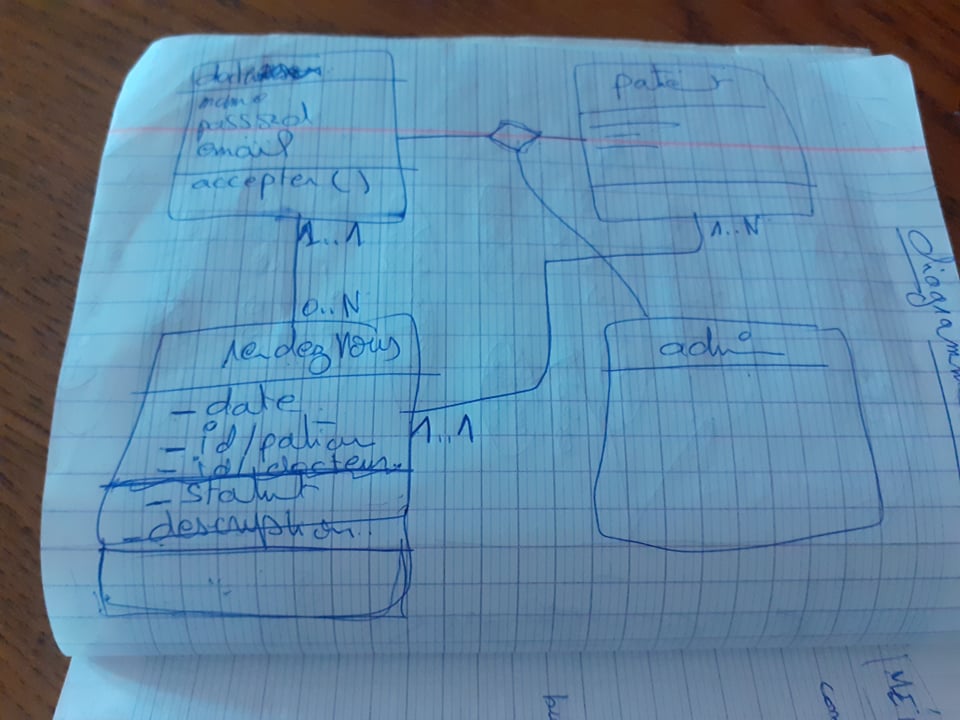 docteur
name
passwd
email
accepter ( )
patient
1..1
1..N
0..N
rendez vous
- date
- id/patien
- id/docteur
- Statut
- description
1..1
admi
Diagramme